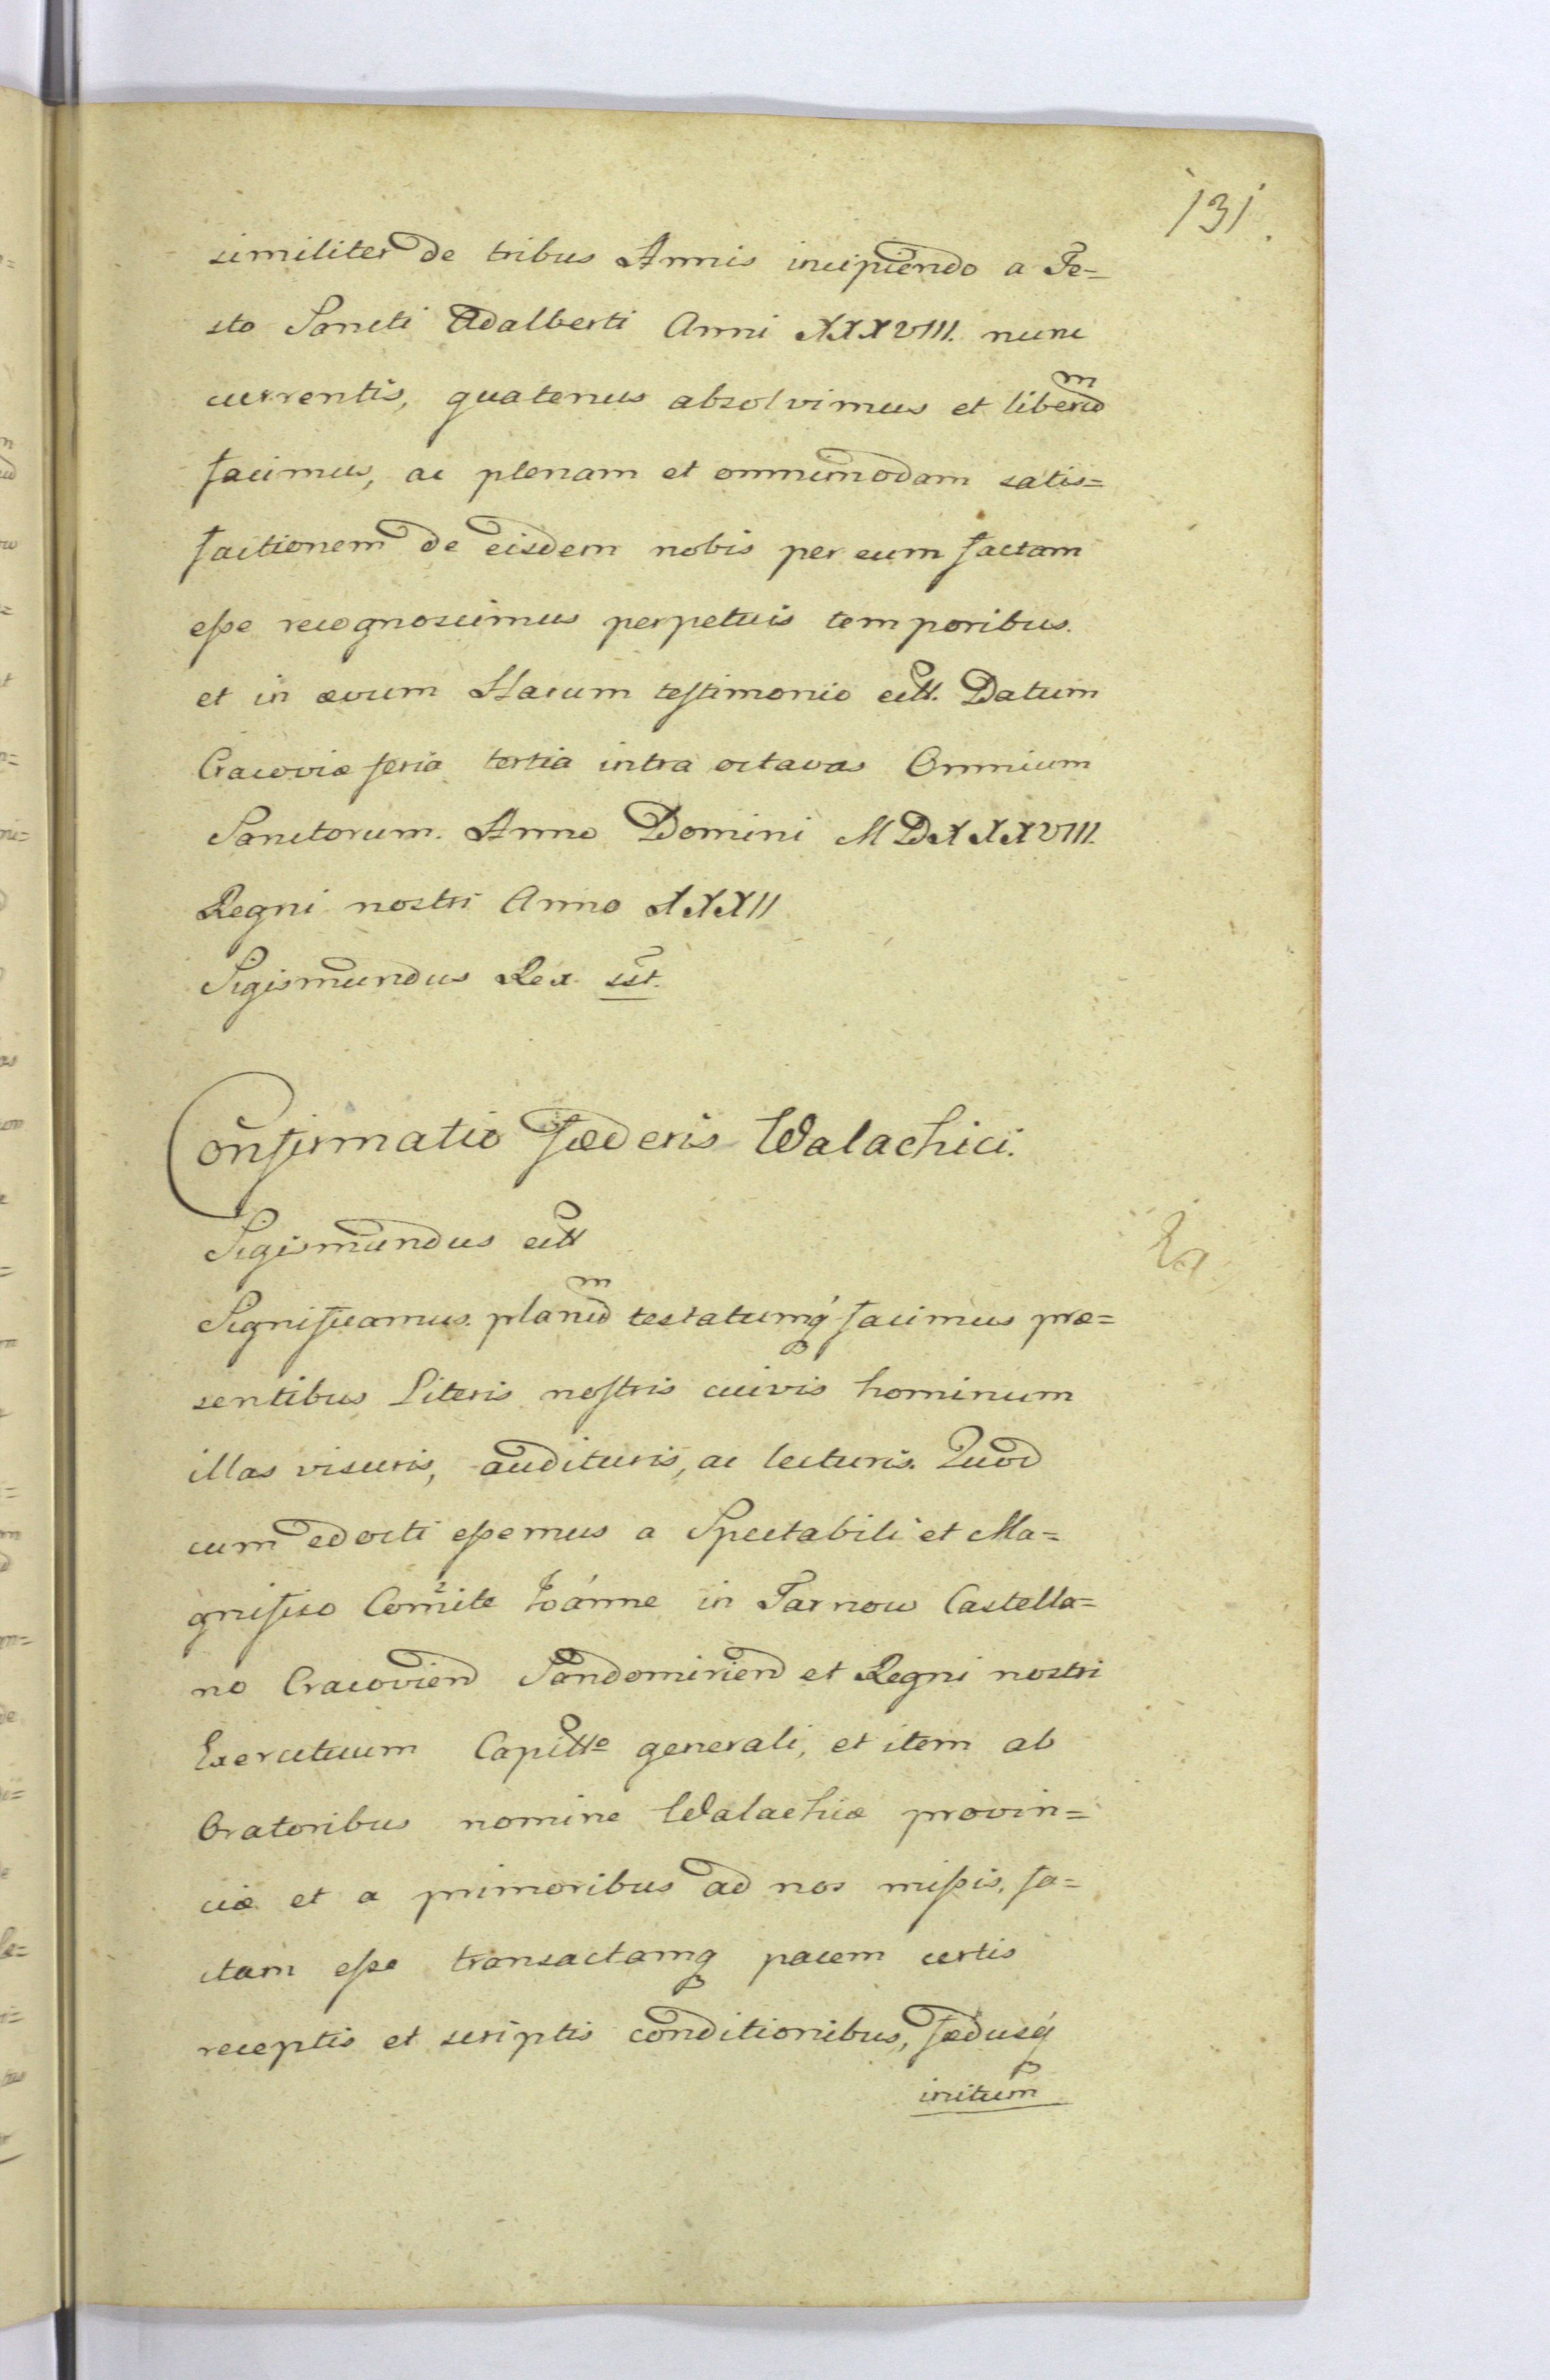 131.
similiter de tribus Annis incipiendo a Fe=
sto Sancti Adalberti Anni XXXVIII. nunc
currentis, quatenus absolvimus et liberū
facimus, ac plenam et omnimodam satis=
factionem de eisdem nobis per eum factam
eſse recognoscimus perpetuis temporibus.
et in ævum Harum teſtimonio ett. Datum
Cracoviæ feria tertia intra octavas Omnium
Sanctorum. Anno Domini MDXXXVIII.
Regni nostri Anno XXXII
Sigismundus Rex sst.
Confirmatio fæderis Walachici.
Sigismundus ett
Significamus. planū testatumq́ facimus præ=
sentibus Literis noſtris cuivis hominum
illas visuris, audituris, ac lecturis. Quod
cum edocti eſsemus a Spectabili et Ma=
gnifico Comite Joánne in Tarnow Castella=
no Cracovien Sandomirien et Regni nostri
Exercituum Capitte generali, et item ab
Oratoribus nomine Walachiæ provin=
ciæ et a primoribus ad nos miſsis, fa=
ctam eſse transactamq pacem certis
receptis et scriptis conditionibus, fædusq́
initum